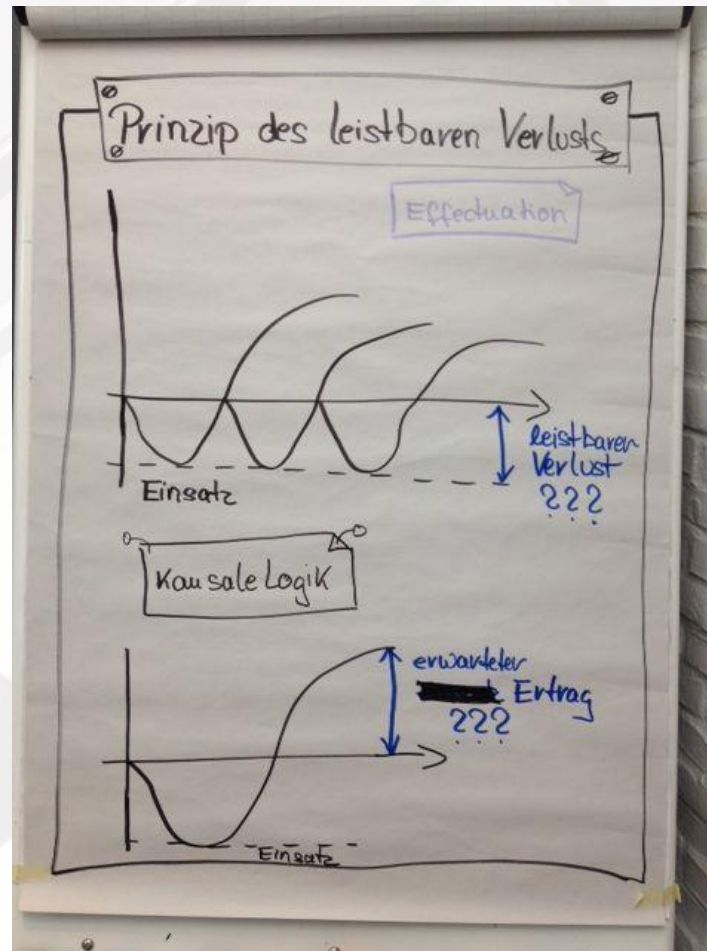 Prinzip des leistbaren Verlusts
Effectuation
leistbaren
Verlust
???
Einsatz
Kausale Logik
erwarteter
Ertrag
???
Einsatz